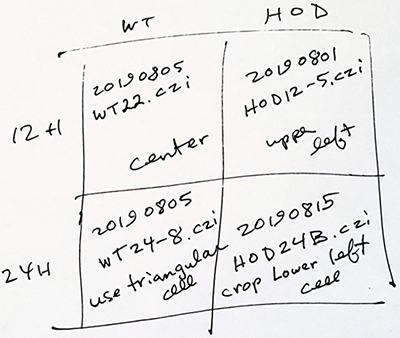 WT HOD
12H
20190805
WT22.czi
center
20190801
HOD12-5.czi
uppe left
24H
20190805
WT24-8.czi
use triangular
cell
20190815
HOD24B.czi
crop Lower left
cell